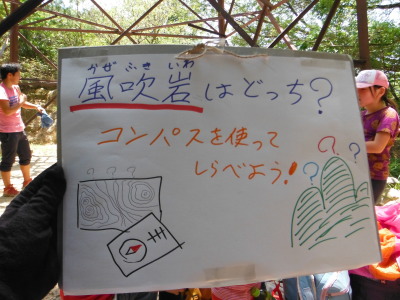 かぜ ぶき いわ
風吹岩はどっち?
コンパスを使って
しらべよう!
? ? ?
? ? ?